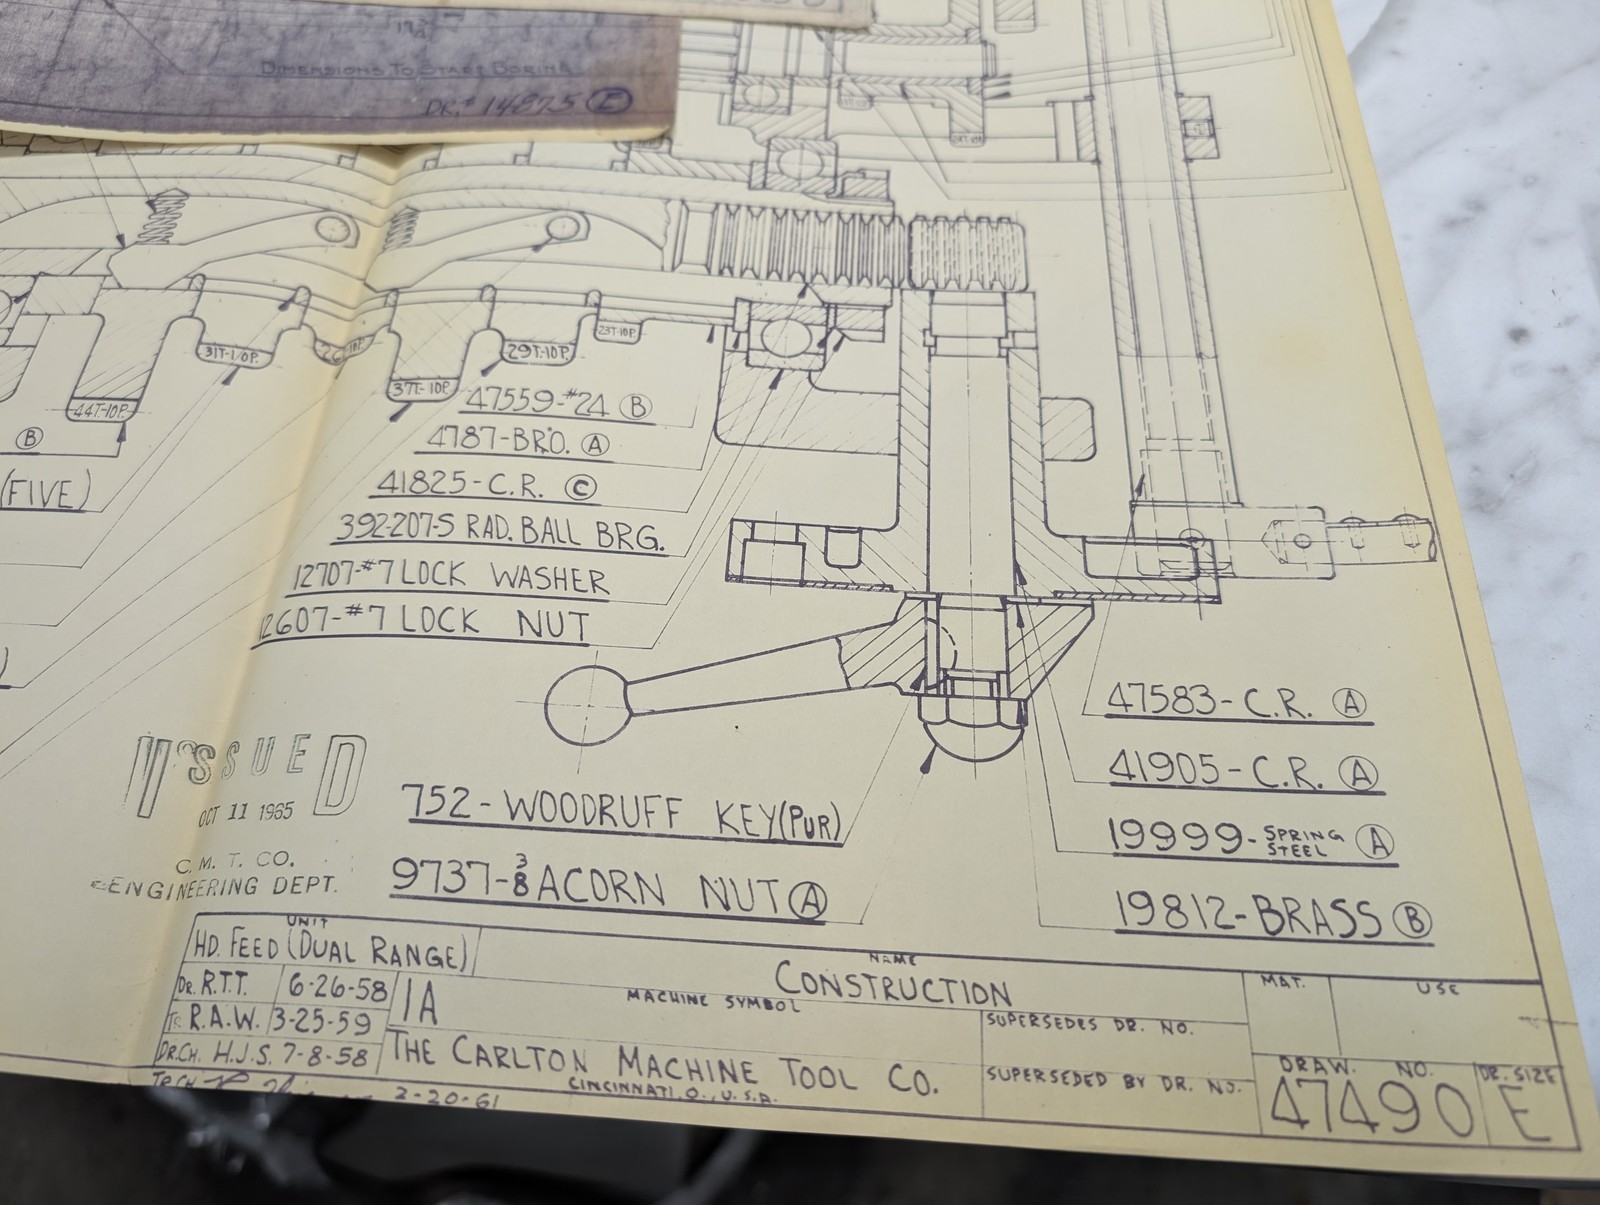 DIMENSIONS TO START BORING
DR.# 14875 E
31T-10P.
37T-10P.
29T-10P.
23T-10P.
44T-10P.
B
(FIVE)
47559-#24 B
4787-BRO. A
41825-C.R. C
392-207-S RAD. BALL BRG.
12707-#7 LOCK WASHER
12607-#7 LOCK NUT
ISSUED
OCT 11 1965
C. M. T. CO.
ENGINEERING DEPT.
752-WOODRUFF KEY(PUR)
9737-3/8 ACORN NUT A
47583-C.R. A
41905-C.R. A
19999-SPRING STEEL A
19812-BRASS B
UNIT
HD. FEED (DUAL RANGE)
DR. R.T.T. 6-26-58
R.A.W. 3-25-59
DR.CH. H.J.S. 7-8-58
TR.CH. 2-20-61
1A
NAME
CONSTRUCTION
MACHINE SYMBOL
THE CARLTON MACHINE TOOL CO.
CINCINNATI, O., U.S.A.
SUPERSEDES DR. NO.
SUPERSEDED BY DR. NO.
MAT.
USE
DRAW. NO.
47490
DR. SIZE
E